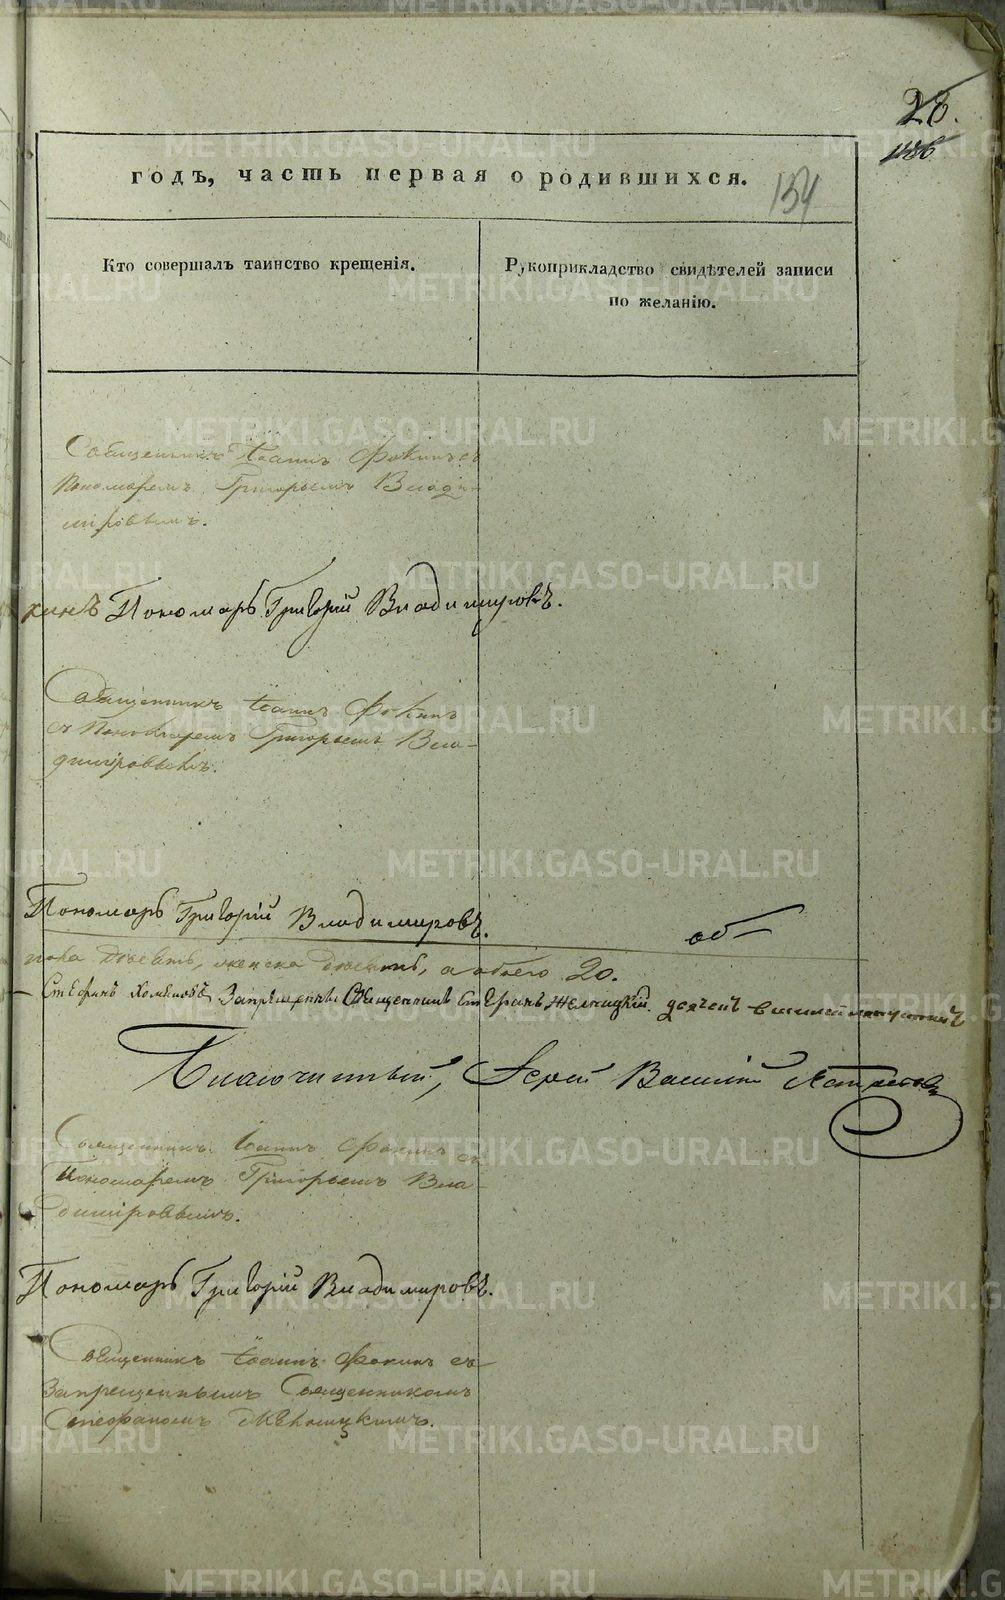 28.
годъ, часть первая о родившихся.
154
Кто совершалъ таинство крещенія.
Рукоприкладство свидѣтелей записи
по желанію.
Священникъ Іоаннъ Фокинъ съ
Пономаремъ Григорьемъ Влади-
міровымъ.
кинъ Пономарь Григорій Владимировъ.
Священникъ Іоаннъ Фокинъ
съ Пономаремъ Григорьемъ Вла-
диміровымъ.
Пономарь Григорій Владимировъ.
об
пола девять, женска девять, а обоего 20.
Запрещенный Священникъ Стефанъ Желницкій. дьячекъ
Благочинный, Іерей Василій
Священникъ Іоаннъ Фокинъ съ
Пономаремъ Григорьемъ Вла-
диміровымъ.
Пономарь Григорій Владимировъ.
Священникъ Іоаннъ Фокинъ съ
Запрещеннымъ Священникомъ
Стефаномъ
METRIKI.GASO-URAL.RU